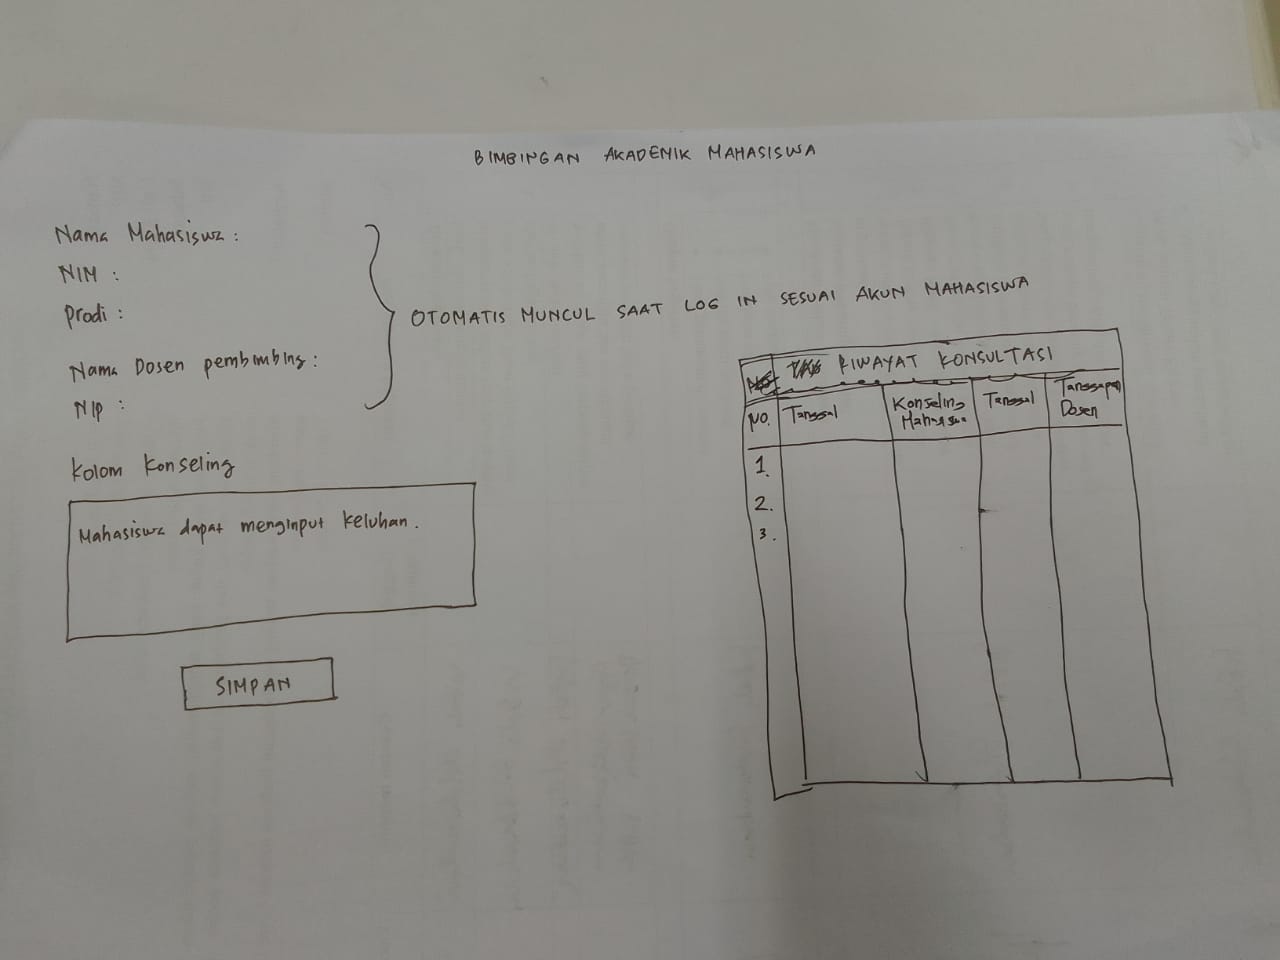 BIMBINGAN AKADEMIK MAHASISWA
Nama Mahasiswa :
NIM :
Prodi :
Nama Dosen pembimbing :
NIP :
OTOMATIS MUNCUL SAAT LOG IN SESUAI AKUN MAHASISWA
Kolom Konseling
Mahasiswa dapat menginput keluhan.
SIMPAN
RIWAYAT KONSULTASI
NO. Tanggal Konseling Mahasiswa Tanggal Tanggapan Dosen
1.
2.
3.